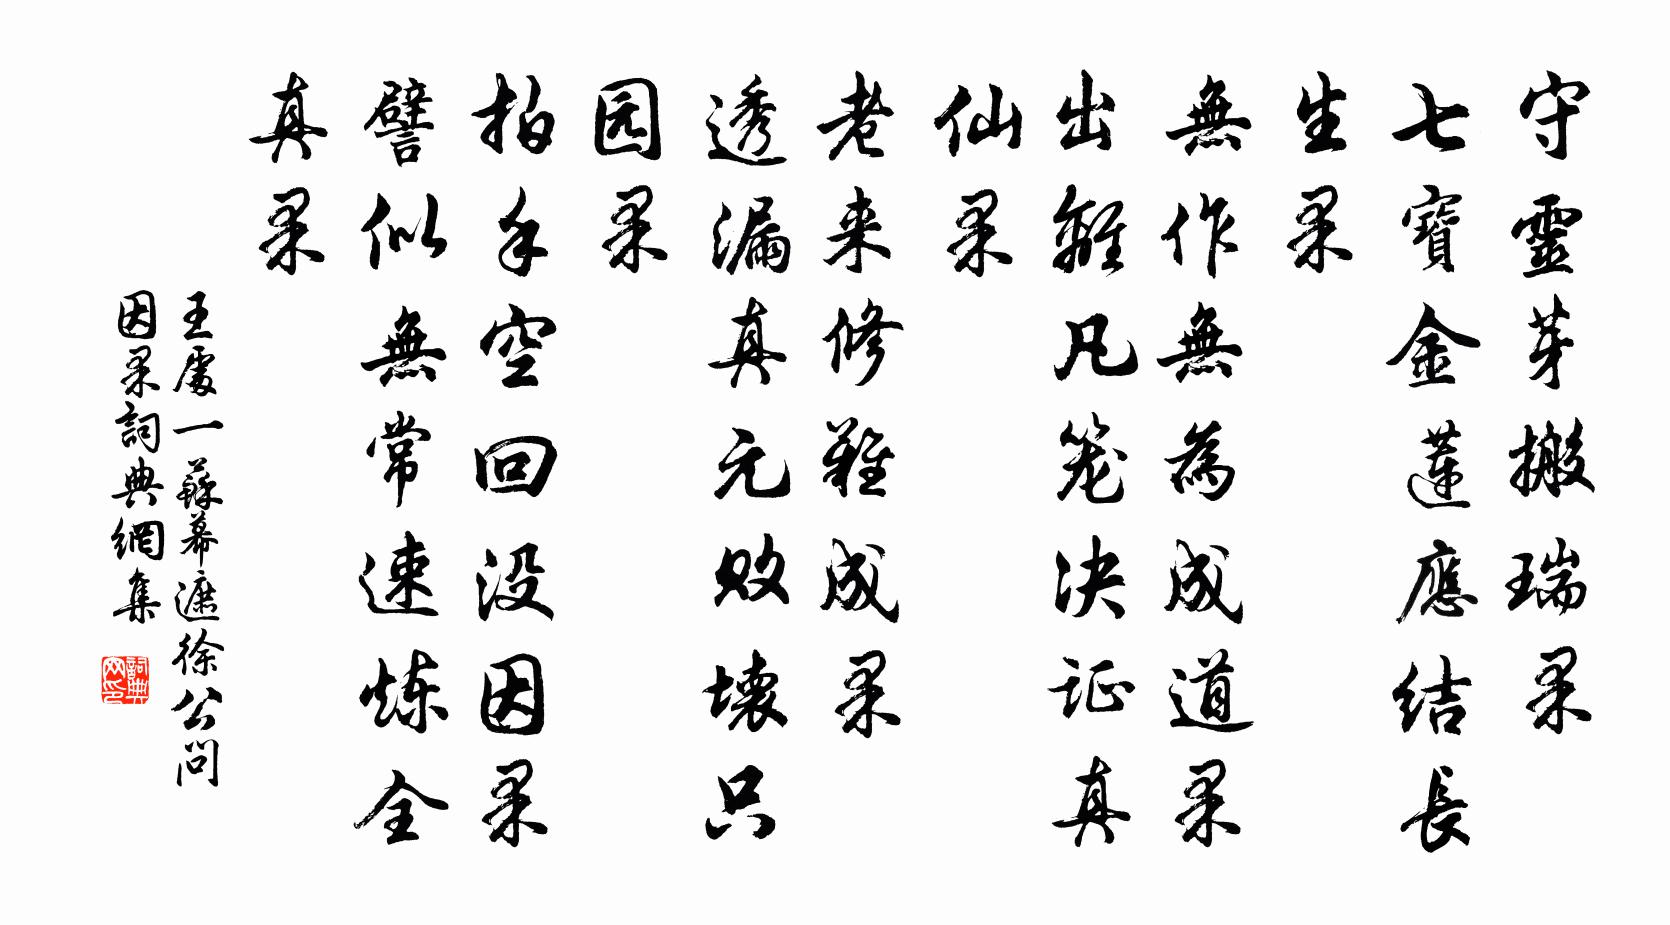 守靈芽搬瑞果
七寶金蓮應結長
生果
無作無為成道果
出離凡笼决证真
仙果
老来修難成果
透漏真元败壊只
园果
拍手空回没因果
譬似無常速炼全
真果
王處一蘇幕遮徐公問
因果詞典網集
詞典网印